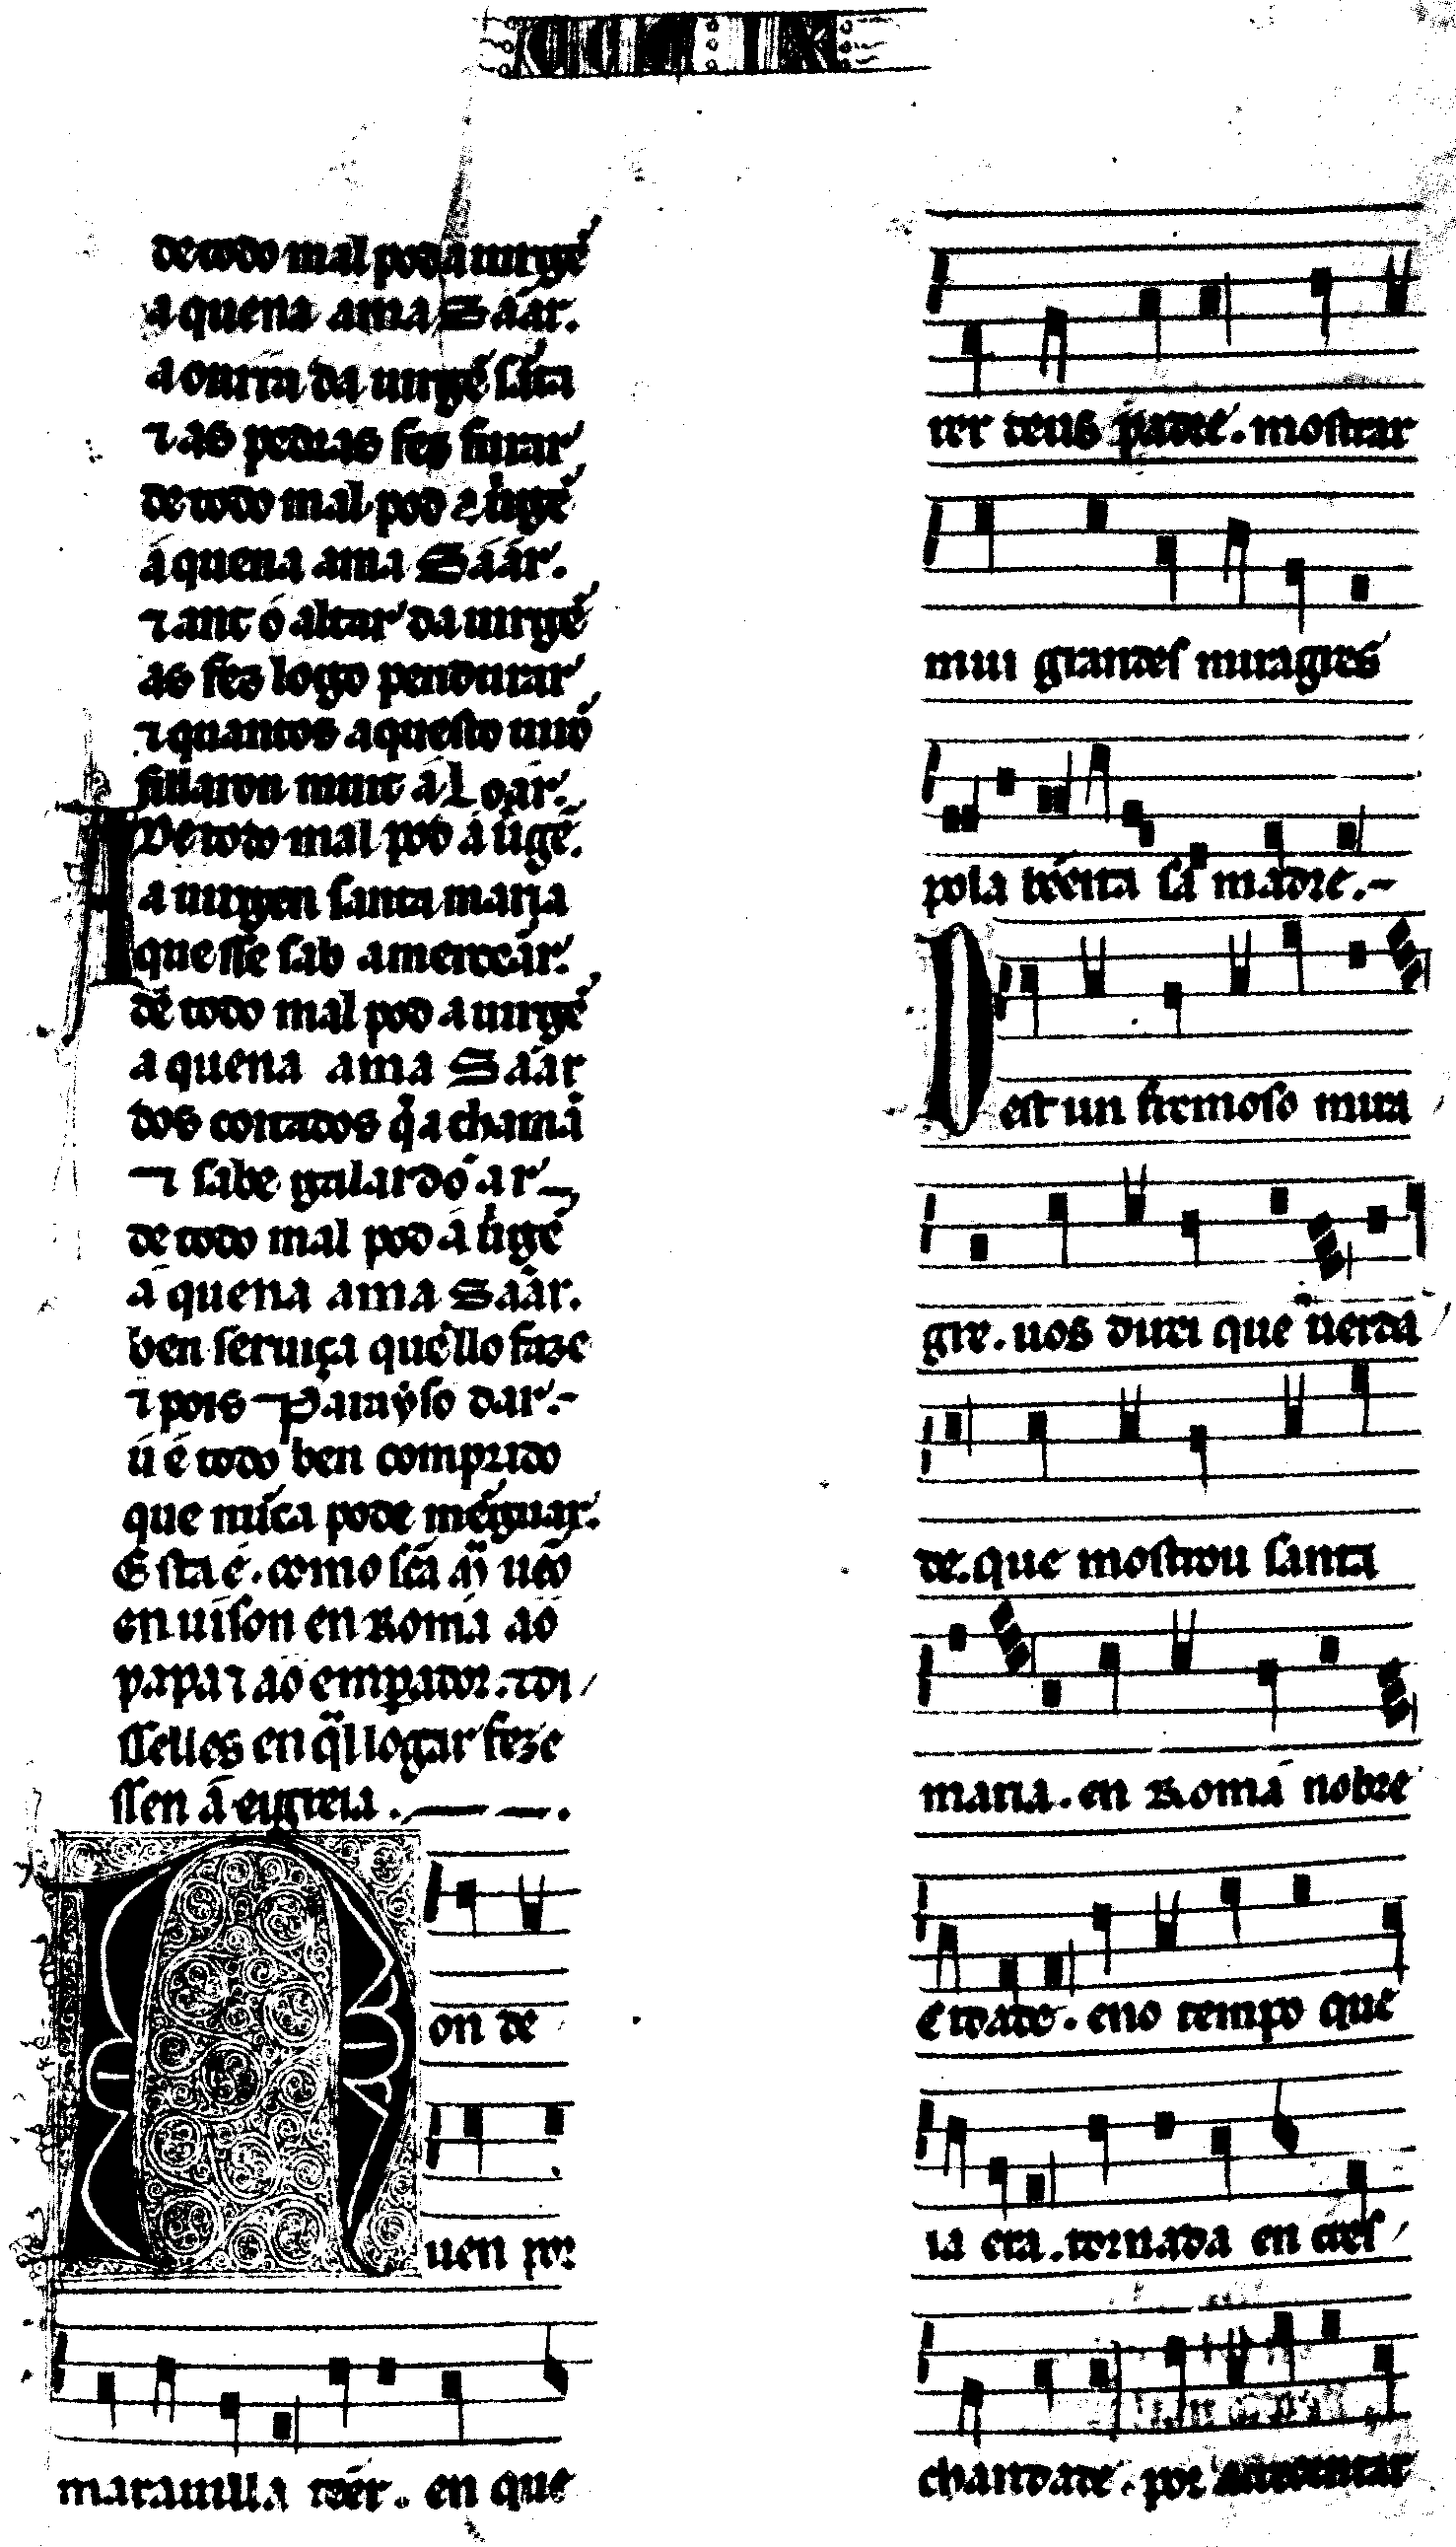 de todo mal pod a uirgẽ
a quena ama Sãar.
a omrra da uirgẽ sãta
⁊ as pedras fez furar
de todo mal pod a uirgẽ
a quena ama Sáár.
⁊ ant o altar da uirgẽ
as fez logo pendurar
⁊ quantos aquesto uirõ
fillaron muit a Loar.
De todo mal pod á uirgẽ.
a uirgen santa maria
que sse sab amercẽar.
de todo mal pod a uirgẽ
a quena ama Sáár
dos coitados q̃ a chamã
⁊ sabe galardõ ar
de todo mal pod á uirgẽ
á quena ama Sáár.
ben seruiça quello faze
⁊ pois Parayso dar.
ú é todo ben comprido
que nũca pode mẽguar.
Esta é. como scã mª uẽo
en uison en Roma ao
papa ⁊ ao emperador. ⁊ di
sselles en q̃l logar feze
ssen a eygreia.
Non de
uen por
marauilla tẽer. en que
rer deus padre. mostrar
mui grandes miragres
pola bẽeita sa madre.
Dest un fremoso mira
gre. uos direi que uerda
de. que mostrou santa
maria. en Roma nobre
cidade. eno tempo que
ia era. tornada en cres
chandade. por acrecentar